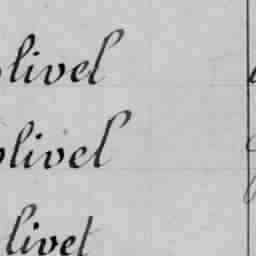 olivel
olivel
livet